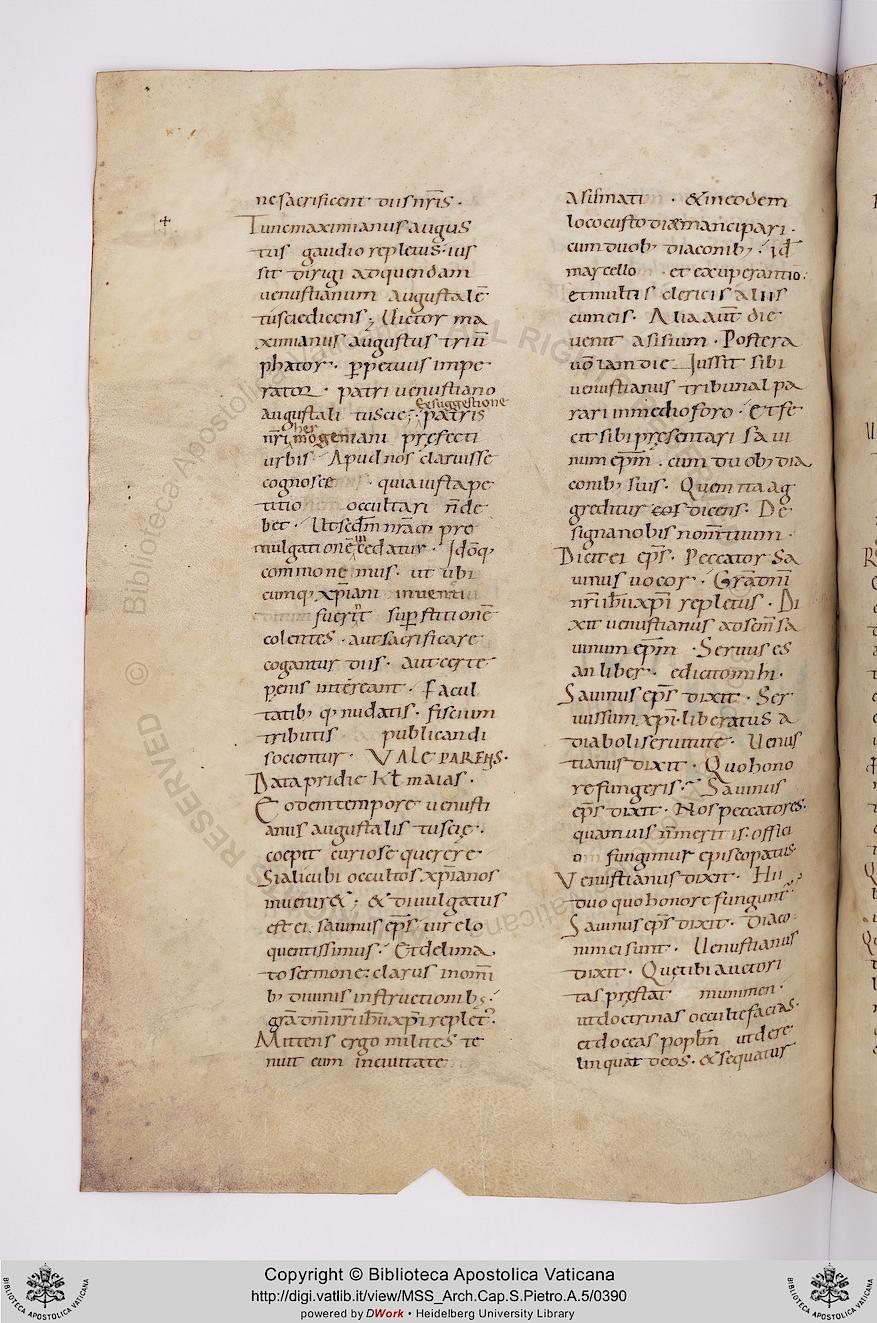 ne sacrificent diis nr̄is ·
Tunc maximianus augus
tus gaudio repletus · ius
sit dirigi ad quendam
uenustianum augustalē
tusciȩ dicens ; Uictor ma
ximianus augustus triū
phator · ꝑpetuus impe
rator · patri uenustiano
augustali tusciȩ ; Ex suggestione patris
nr̄i hermogeniani prȩfecti
urbis · Apud nos claruisse
cognosce · quia iusta pe
titio occultari n̄ de
bet · Ut secd̄m nr̄am pro
mulgationē cedatur · Idōq;
commonemus · ut ubi
cumq; xp̄iani inuenti
fuerīt suꝑstitionē
colentes · aut sacrificare
cogantur diis · aut certe
pȩnis intereant · Facul
tatib; q; nudatis · fiscium
tributis publicandi
socientur · VALE PARENS ·
Data pridie kł maias ·
Eodem tempore uenusti
anus augustalis tusciȩ ·
coepit curiose querere
Si alicubi occultos xp̄ianos
inuenire& ; & diuulgatus
est ei · sauinus ep̄s uir elo
quentissimus · Et delima
to sermone : clarus in om̄i
b; diuinis instructionib; ·
gr̄a dn̄i nr̄i ihū xp̄i replet; ·
Mittens ergo milites te
nuit eum in ciuitate
Asisinati · & in eodem
loco custodiȩ mancipari ·
cum duob; diaconib; · id
marcello · et exuperantio ·
et multis clericis aliis
cum eis · Alia aut̄ die
uenit asisium · Postera
uō iam die Iussit sibi
uenustianus tribunal pa
rari in medio foro · Et fe
cit sibi prȩsentari saui
num ep̄m · cum duob; dia
conib; suis · Quem ita ag
greditur eos dicens · De
signa nobis nom̄ tuum ·
Dicit ei ep̄s · Peccator sa
uinus uocor · Gr̄a dn̄i
nr̄i ihū xp̄i repletus · Di
xit uenustianus ad sc̄m sa
uinum ep̄m · Seruus es
an liber · edicito mihi ·
Sauinus ep̄s dixit · Ser
uus sum xp̄i · liberatus a
diaboli seruitute · Uenus
tianus dixit · Quo hono
re fungeris · Sauinus
ep̄s dixit · Nos peccatores
quamuis n̄ meritis · offici
o fungimur episcopatus ·
Venustianus dixit · Hii
duo quo honore funguntˢ
Sauinus ep̄s dixit · Diaco
ni mei sunt · Uenustianus
dixit · Que tibi auctori
tas prȩstat
ut doctrinas occulte facias ·
et doceas popl̄m ut dere
linquat deos · & sequatur